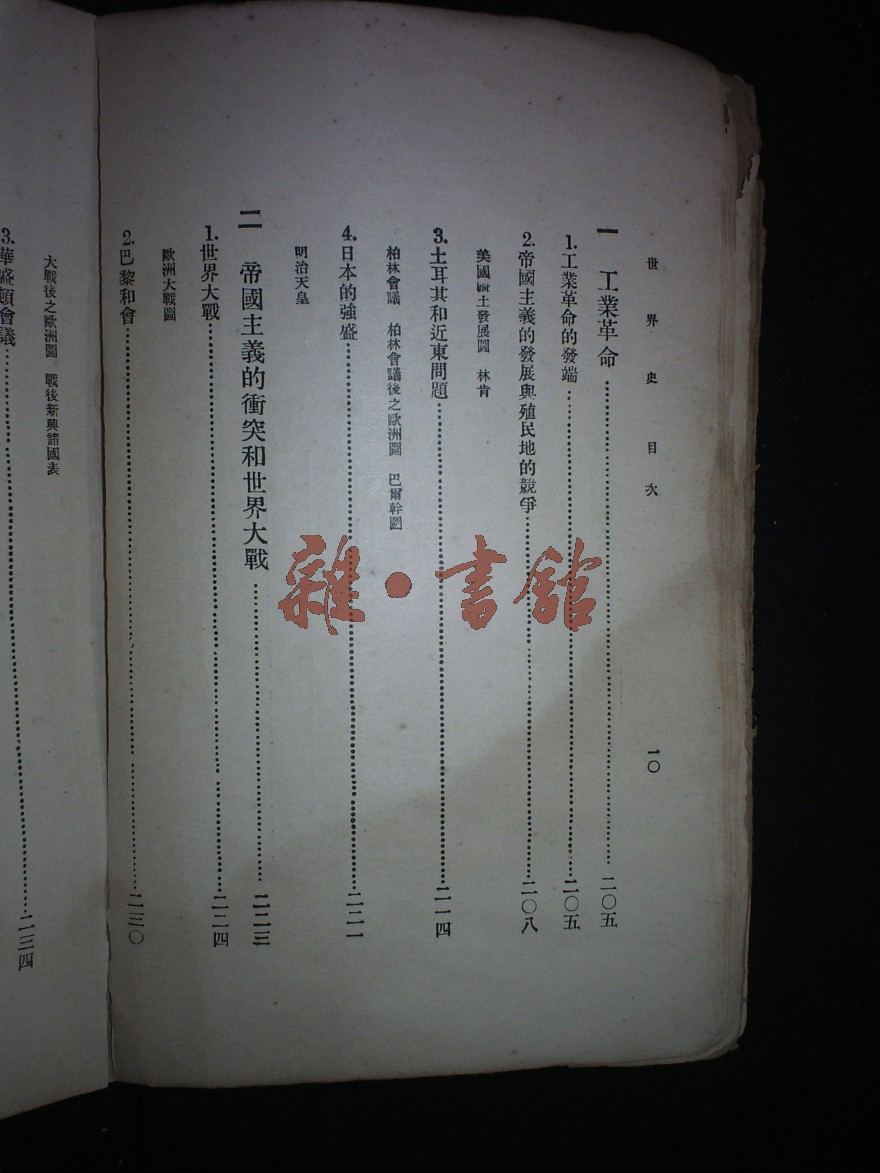 世界史目次
一〇
一 工業革命……二〇五
1.工業革命的發端……二〇五
2.帝國主義的發展與殖民地的競爭……二〇八
美國領土發展圖 林肯
3.土耳其和近東問題……二一四
柏林會議 柏林會議後之歐洲圖 巴爾幹圖
4.日本的強盛……二二一
明治天皇
二 帝國主義的衝突和世界大戰……二二三
1.世界大戰……二二四
歐洲大戰圖
2.巴黎和會……二三〇
大戰後之歐洲圖 戰後新興諸國表
3.華盛頓會議……二三四
雜·書館